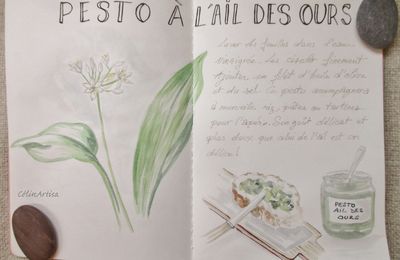 PESTO À L'AIL DES OURS
Laver les feuilles dans l'eau
vinaigrée. Les ciseler finement
ajouter un filet d'huile d'olive
et du sel. Ce pesto accompagnera
à merveille riz, pâtes ou tartines
pour l'apéro. Son goût délicat et
plus doux que celui de l'ail est un
délice!
CélinArtisa
PESTO
AIL DES
OURS